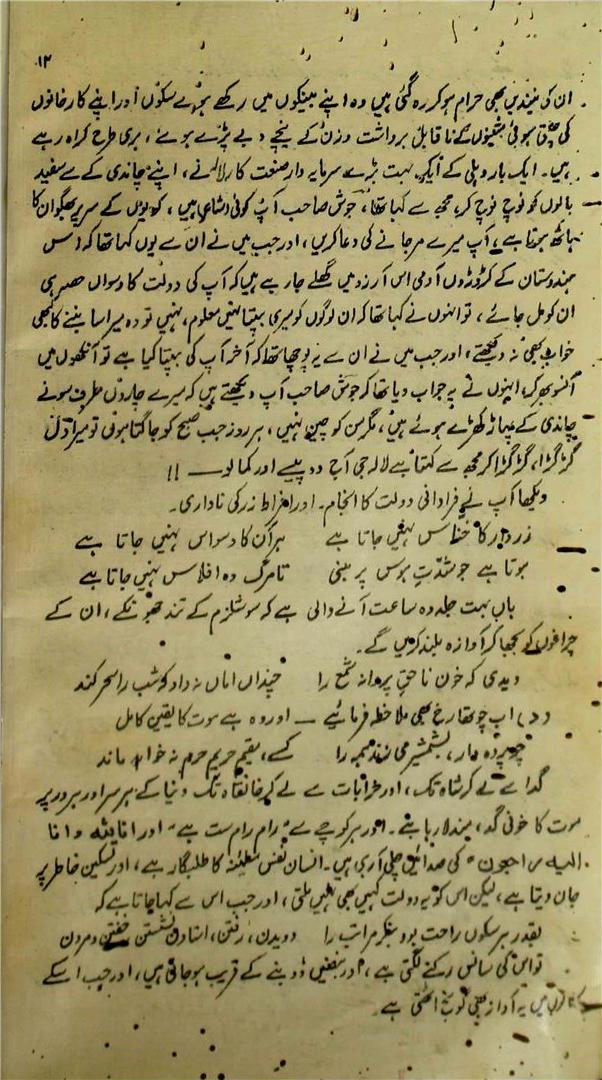 ۱۳
ان کی نیندیں بھی حرام ہو کر رہ گئی ہیں وہ اپنے بینکوں میں رکھے ہوئے سکوں اور اپنے کارخانوں
کی چلتی ہوئی مشینوں کے ناقابل برداشت وزن کے نیچے دبے پڑے ہوئے، بری طرح کراہ رہے
ہیں۔ ایک بار دہلی کے ایک بہت بڑے سرمایہ دار صنعت کار لالہ نے، اپنے چاندی کے سے سفید
بالوں کو نوچ نوچ کر، مجھ سے کہا تھا، جوش صاحب آپ کوئی دشاعر ہیں، کویوں کے سر پر بھگوان کا
ہاتھ ہوتا ہے، آپ میرے مر جانے کی دعا کریں، اور جب میں نے ان سے یوں کہا تھا کہ اس
ہندوستان کے کروڑوں آدمی اس آرزو میں گھلے جا رہے ہیں کہ آپ کی دولت کا دسواں حصہ ہی
ان کو مل جائے، تو انہوں نے کہا تھا کہ ان لوگوں کو میری بپتا نہیں معلوم، نہیں تو وہ میرا سا بننے کا کبھی
خواب بھی نہ دیکھتے، اور جب میں نے ان سے یہ پوچھا تھا کہ آخر آپ کی بپتا کیا ہے تو آنکھوں میں
آنسو بھر کر، انہوں نے یہ جواب دیا تھا کہ جوش صاحب آپ دیکھتے ہیں کہ میرے چاروں طرف سونے
چاندی کے پہاڑ کھڑے ہوئے ہیں، مگر من کو چین نہیں، ہر روز جب صبح کو جاگتا ہوں تو میرا دل
گڑگڑا، گڑگڑا کر مجھ سے کہتا ہے لالہ جی آج دو پیسے اور کما لو ـــ !!
دیکھا آپ نے فراوانی دولت کا انجام۔ اور افراط زر کی ناداری۔
زردار کا خناس نہیں جاتا ہے ہر آن کا وسواس نہیں جاتا ہے
ہوتا ہے جو شدتِ ہوس پر مبنی تا مرگ وہ افلاس نہیں جاتا ہے
ہاں بہت جلد وہ ساعت آنے والی ہے کہ سوشلزم کے تند جھونکے، ان کے
چراغوں کو بجھا کر آوازہ بلند کریں گے۔
دیدی کہ خون ناحق پروانہ شمع را چنداں اماں نہ داد کہ شب را سحر کند
(د) اب چوتھا رخ بھی ملاحظہ فرمائیے ـــ اور وہ ہے موت کا یقین کامل
چو پردہ دار، بشمشیر می زند ہمہ را کسے، مقیم حریم حرم نہ خواہد ماند
گدا سے لے کر شاہ تک، اور خرابات سے لے کر خانقاہ تک دنیا کے ہر سر اور ہر در پر
موت کا خونی گد، منڈلا رہا ہے۔ اور ہر کوچے سے "رام رام ست ہے" اور "انا للہ و انا
الیہ راجعون" کی صدائیں چلی آ رہی ہیں۔ انسان نفس مطمئنہ کا طلبگار ہے، اور تسکین خاطر پر
جان دیتا ہے، لیکن اس کو یہ دولت کہیں بھی نہیں ملتی، اور جب اس سے کہا جاتا ہے کہ
بقدر ہر سکوں راحت بود بنگر مراتب را دویدن، رفتن، استادن، نشستن خفتن و مردن
تو اس کی سانس رکنے لگتی ہے، اور نبضیں ڈوبنے کے قریب ہو جاتی ہیں، اور جب اس کے
کانوں میں یہ آواز بھی گونج اٹھتی ہے۔